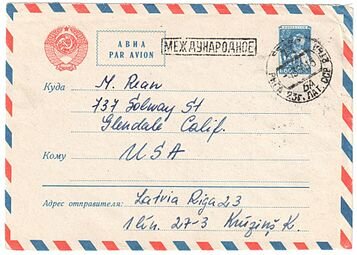 АВИА
PAR AVION
МЕЖДУНАРОДНОЕ
Куда
M. Rean
737 Solway St
Glendale Calif.
Кому
USA
Адрес отправителя:
Latvia Riga 23
1 lin. 27-3 Krūziņš K.
РИГА 23c. ЛАТ. ССР